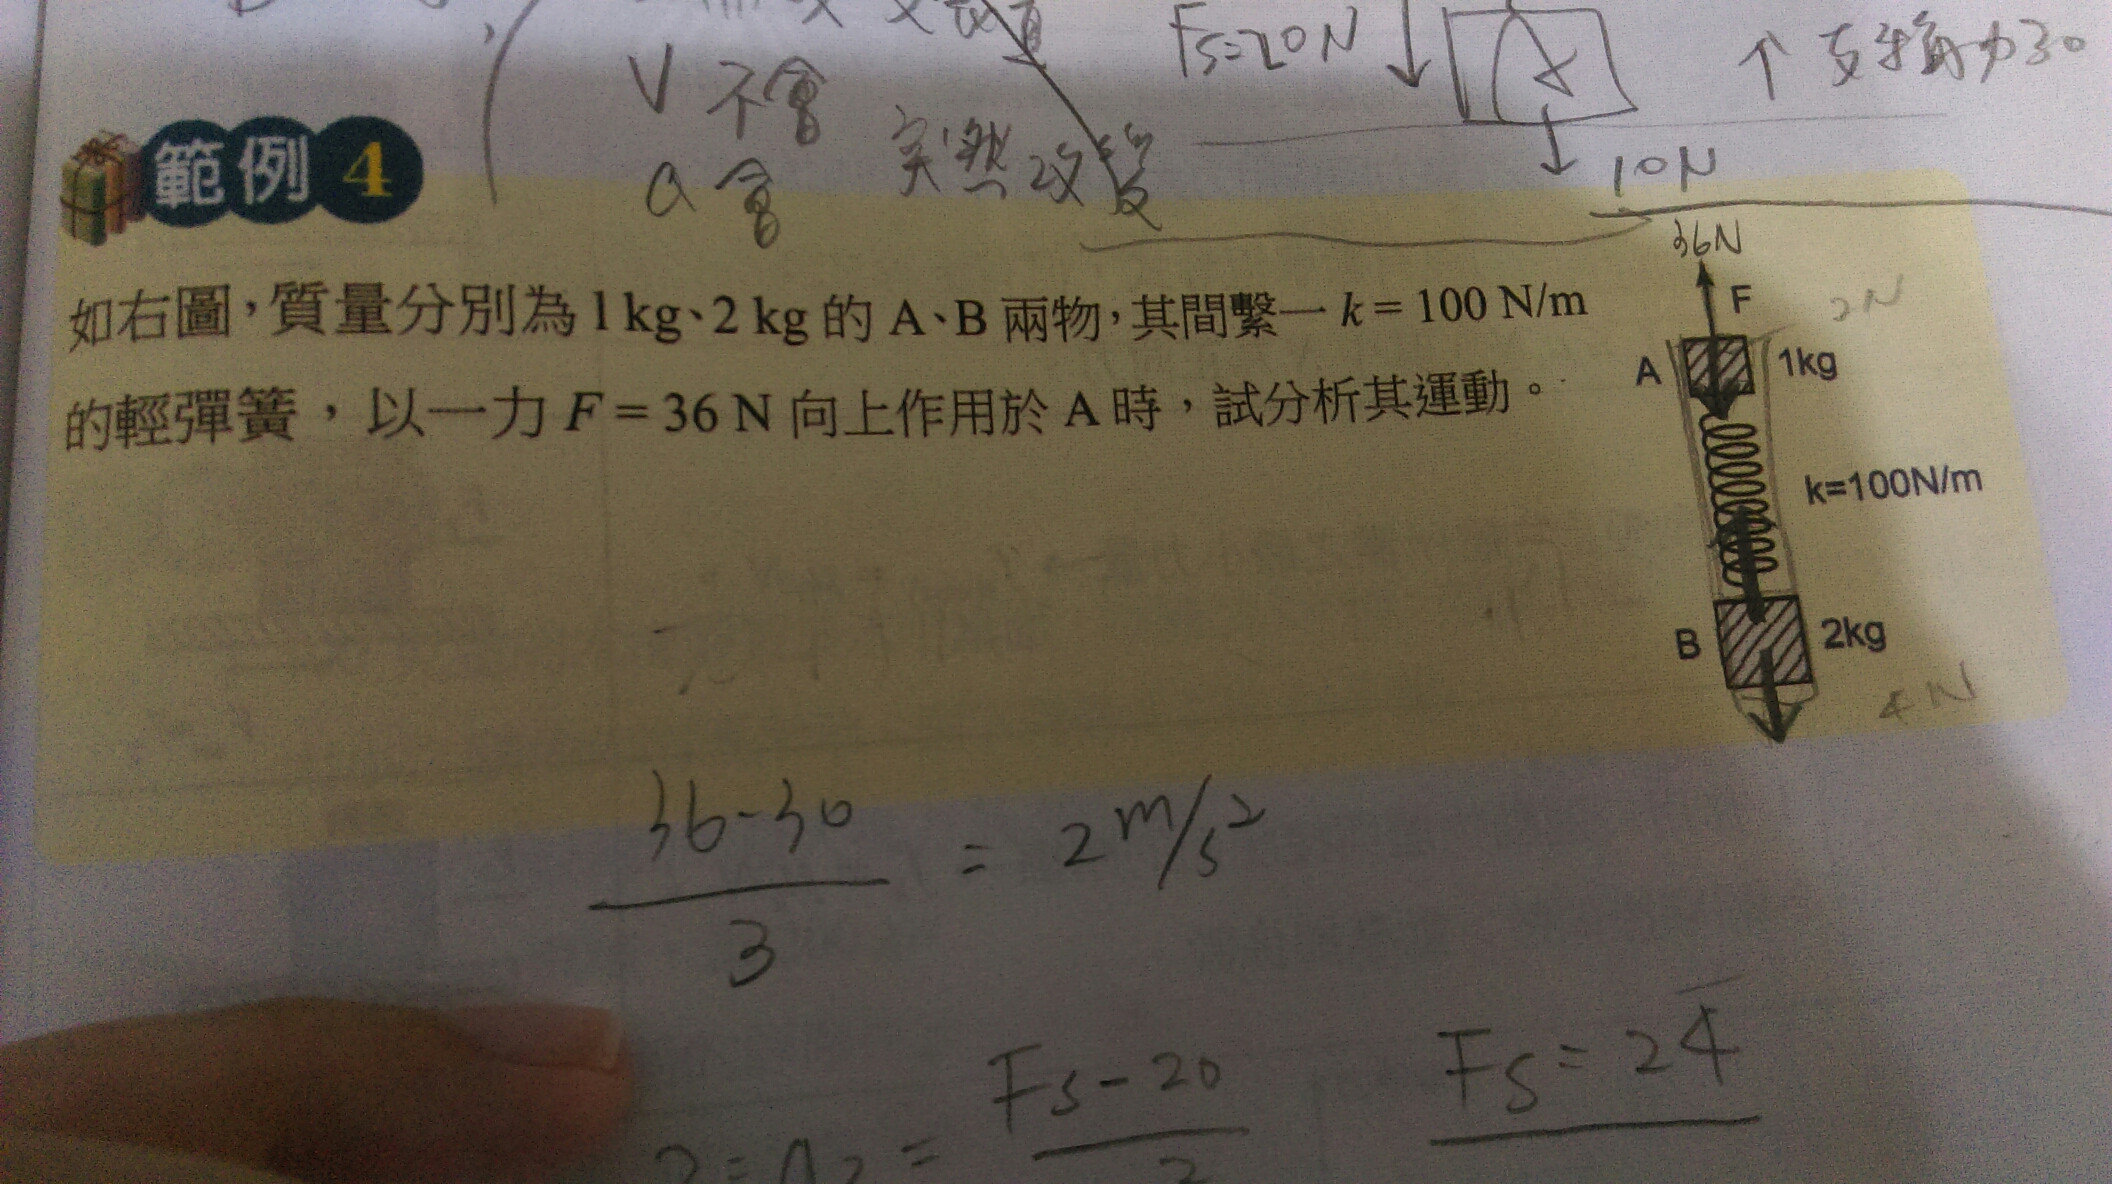 Fs=20N
↑ 支撐力30
V 不會
a 會 突然改變
10N
範例 4
36N
如右圖,質量分別為 1 kg、2 kg 的 A、B 兩物,其間繫一 k = 100 N/m
的輕彈簧,以一力 F = 36 N 向上作用於 A 時,試分析其運動。
F
2N
A
1kg
k=100N/m
B
2kg
4N
36-30
3
= 2 m/s²
Fs-20
Fs = 24